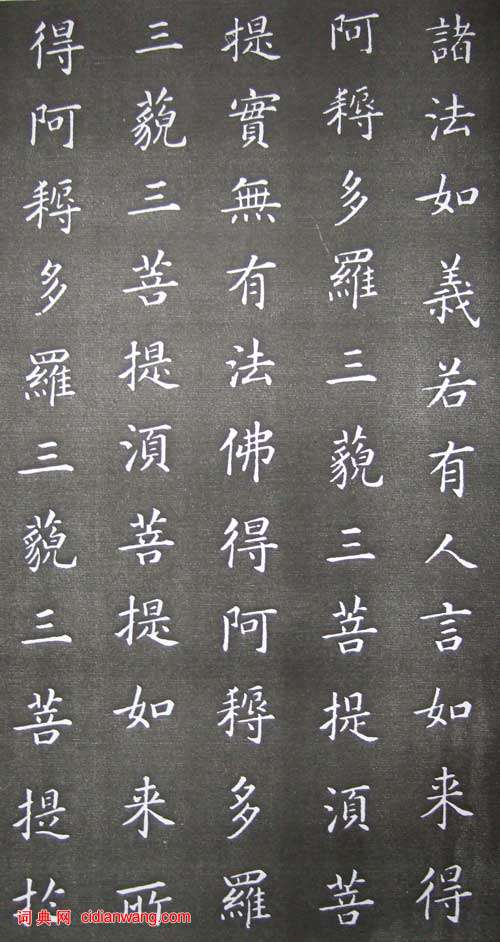 諸法如義若有人言如来得
阿耨多羅三藐三菩提湏菩
提實無有法佛得阿耨多羅
三藐三菩提湏菩提如来所
得阿耨多羅三藐三菩提於
词典网 cidianwang.com